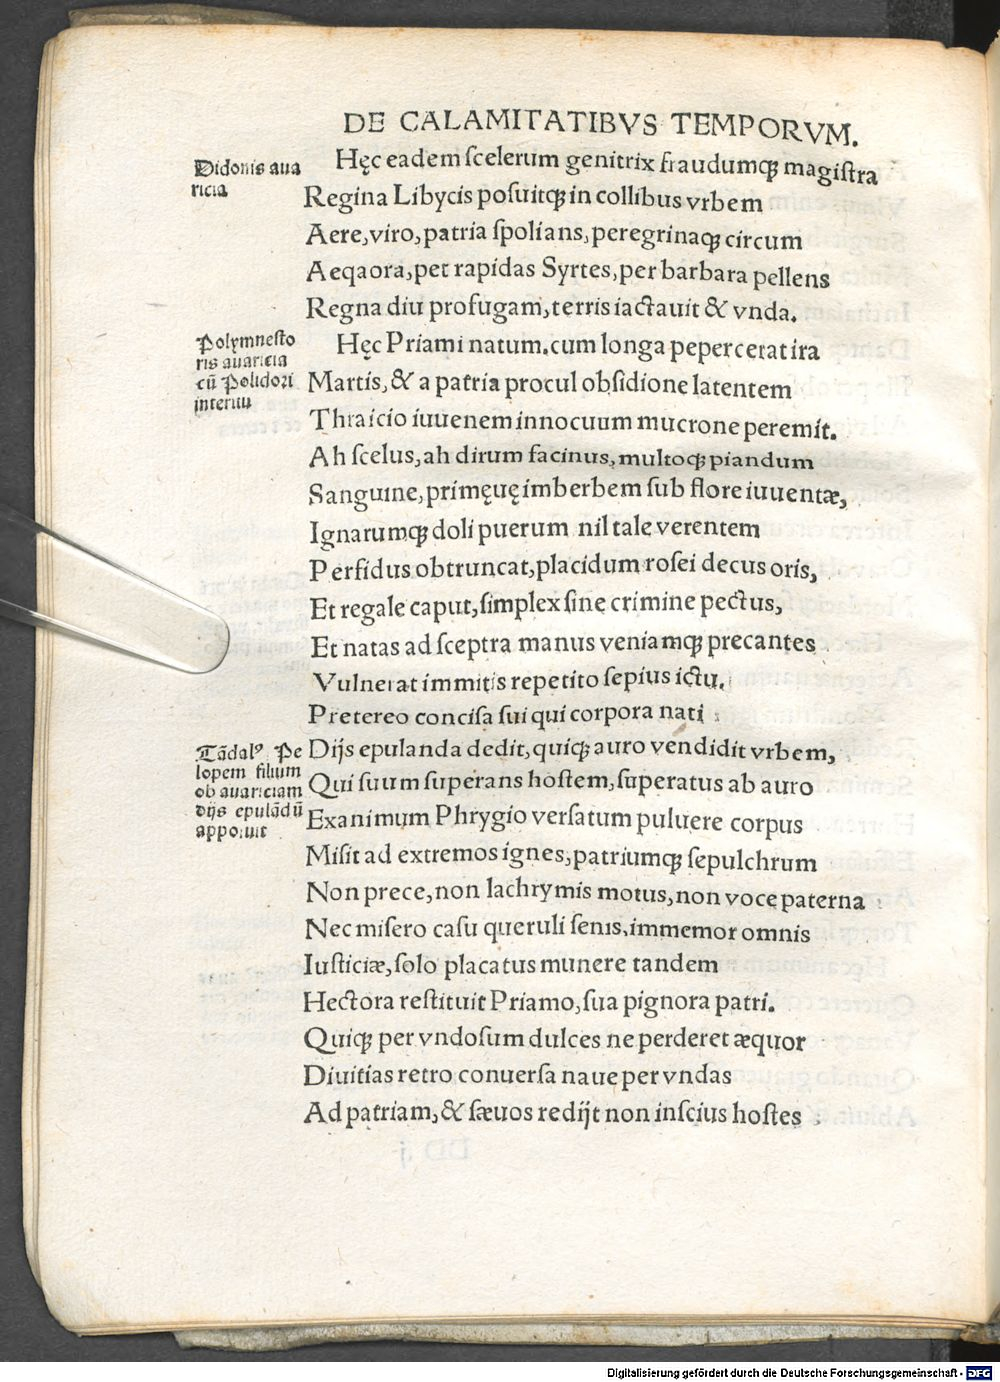 DE CALAMITATIBVS TEMPORVM.
Didonis aua
ricia
Hęc eadem ſcelerum genitrix fraudumqꝫ magiſtra
Regina Libycis poſuitqꝫ in collibus vrbem
Aere, viro, patria ſpolians, peregrinaqꝫ circum
Aeqaora, per rapidas Syrtes, per barbara pellens
Regna diu profugam, terris iactauit & vnda.
Polymneſto
ris auaricia
cū Polidori
interitu
Hęc Priami natum. cum longa pepercerat ira
Martis, & a patria procul obſidione latentem
Thraicio iuuenem innocuum mucrone peremit.
Ah ſcelus, ah dirum facinus, multoqꝫ piandum
Sanguine, primęuę imberbem ſub flore iuuentæ,
Ignarumqꝫ doli puerum nil tale verentem
Perfidus obtruncat, placidum roſei decus oris,
Et regale caput, ſimplex ſine crimine pectus,
Et natas ad ſceptra manus veniamqꝫ precantes
Vulnerat immitis repetito ſepius ictu.
Pretereo conciſa ſui qui corpora nati
Tādalꝰ Pe
lopem filium
ob auariciam
dijs epulādū
appoſuit
Dijs epulanda dedit, quiqꝫ auro vendidit vrbem,
Qui ſuum ſuperans hoſtem, ſuperatus ab auro
Exanimum Phrygio verſatum puluere corpus
Miſit ad extremos ignes, patriumqꝫ ſepulchrum
Non prece, non lachrymis motus, non voce paterna
Nec miſero caſu queruli ſenis, immemor omnis
Iuſticiæ, ſolo placatus munere tandem
Hectora reſtituit Priamo, ſua pignora patri.
Quiqꝫ per vndoſum dulces ne perderet æquor
Diuitias retro conuerſa naue per vndas
Ad patriam, & ſæuos redijt non inſcius hoſtes
Digitalisierung gefördert durch die Deutsche Forschungsgemeinschaft - DFG